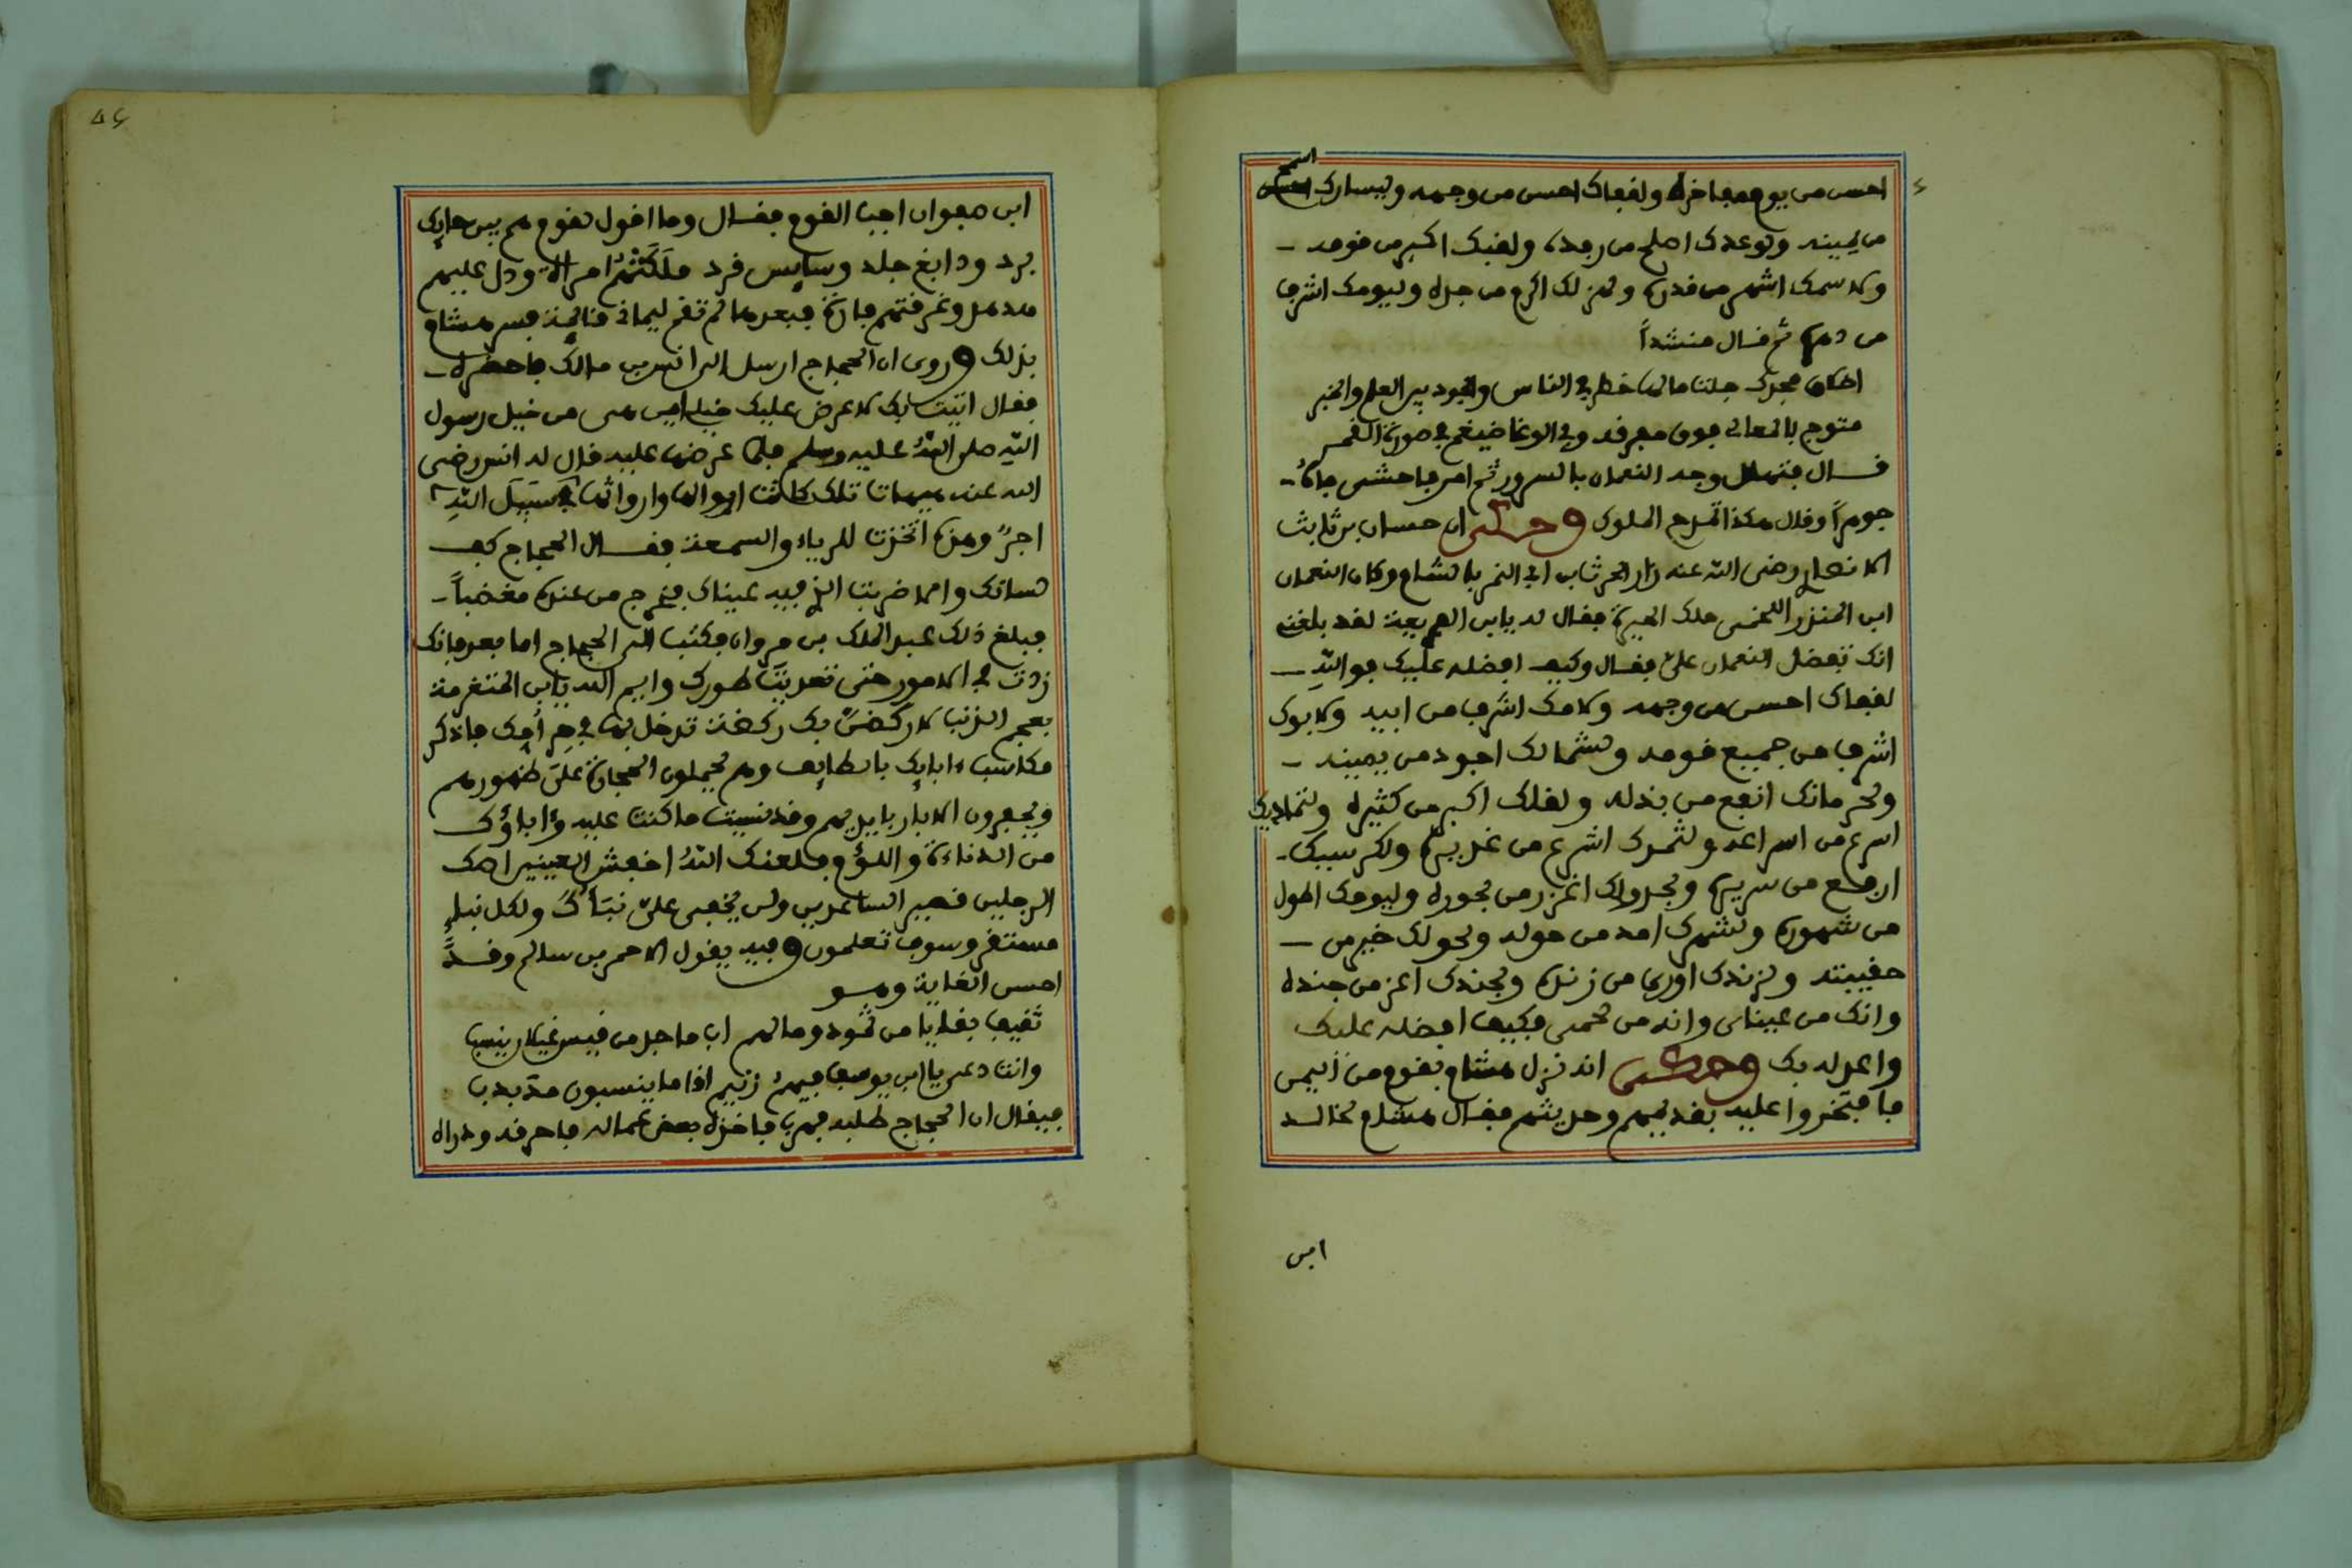 احسن من يوم مفاخره ولقفاك احسن من وجهه وليسارك اسمح
من يمينه ولوعدك اصلح من رفده ولغيك اكبر من قومه
ولاسمك اشهر من قدره ولهزلك اكرم من جده وليومك اشرف
من دهره ثم قال منشدا
اخلاق مجدك جلت ما لها خطر في الناس والجود بين العلم والخبر
متوج بالمعالي فوق مفرقه وفي الوغا ضيغم في صورة القمر
قال فتهلل وجه النعمان بالسرور ثم امر فاحشى فاه
جوهرا وقال هكذا تمدح الملوك وحكى ان حسان بن ثابث
الانصاري رضي الله عنه زار الحرث ابن ابي الشمر بالشام وكان النعمان
ابن المنذر اللخمي ملك الحيرة فقال له يابن الفريعة لقد بلغني
انك تفضل النعمان علي فقال وكيف افضله عليك فوالله
لقفاك احسن من وجهه ولامك اشرف من ابيه ولابوك
اشرف من جميع قومه ولشمالك اجود من يمينه
ولحرمانك انفع من بذله ولقلك اكبر من كثيره ولثمادك
اسرع من اسراعه ولثمدك اشرع من غديره ولكرسيك
ارفع من سريره ولجدولك اغزر من بحوره وليومك اطول
من شهوره ولشهرك امد من حوله ولحولك خير من
حقيبته ولزندك اورى من زنده ولجندك اعز من جنده
وانك من غسان وانه من لخم فكيف افضله عليك
واعدله بك وحكى انه نزل هشام بقوم من اليمن
فافتخروا عليه بقديمهم وحديثهم فقال هشام لخالد
ابن
٥٤
ابن صفوان اجب القوم فقال وما اقول لقوم هم بين حايك
برد ودابغ جلد وسايس قرد ملكتهم امراة ودل عليهم
هدهد وغرقتهم فارة فبعدها لم تقم ليماني قايمة فسر هشام
بذلك وروى ان الحجاج ارسل الى انس بن مالك فاحضره
فقال اتيت بك لاعرض عليك خيلي اين هي من خيل رسول
الله صلى الله عليه وسلم فلما عرضها عليه قال له انس رضي
الله عنه هيهات تلك كانت ابوالها وارواثها في سبيل الله
اجر وهذه اتخذت للرياء والسمعة فقال الحجاج كف
لسانك والا ضربت الذي فيه عيناك فخرج من عنده مغضبا
فبلغ ذلك عبد الملك بن مروان فكتب الى الحجاج اما بعد فانك
زدت في الامور حتى تعديت طورك وايم الله يابن المتغرمة
بعجم الزبيب لاركضن بك ركضة تدخل بها في حر امك فاذكر
مكاسب ءابايك بالطايف وهم يحملون الحجارة على ظهورهم
ويحفرون الابار بايديهم وقد نسيت ما كنت عليه وءاباؤك
من الدناءة واللؤم فلعنك الله اخفش العينين اصك
الرجلين قصير الساعدين ولن يخفى علي نبأك ولكل نبإ
مستقر وسوف تعلمون وفيه يقول الاحمر بن سالم وقد
احسن الغاية وهو
ثقيف بقايا من ثمود وما لهم اب ماجد من قيس غيلان ينسب
وانت دعي يا ابن يوسف فيهم زنيم اذا ما ينسبون مذبذب
فيقال ان الحجاج طلبه فهرب فاخذه بعض عماله فاحرقه وذراه